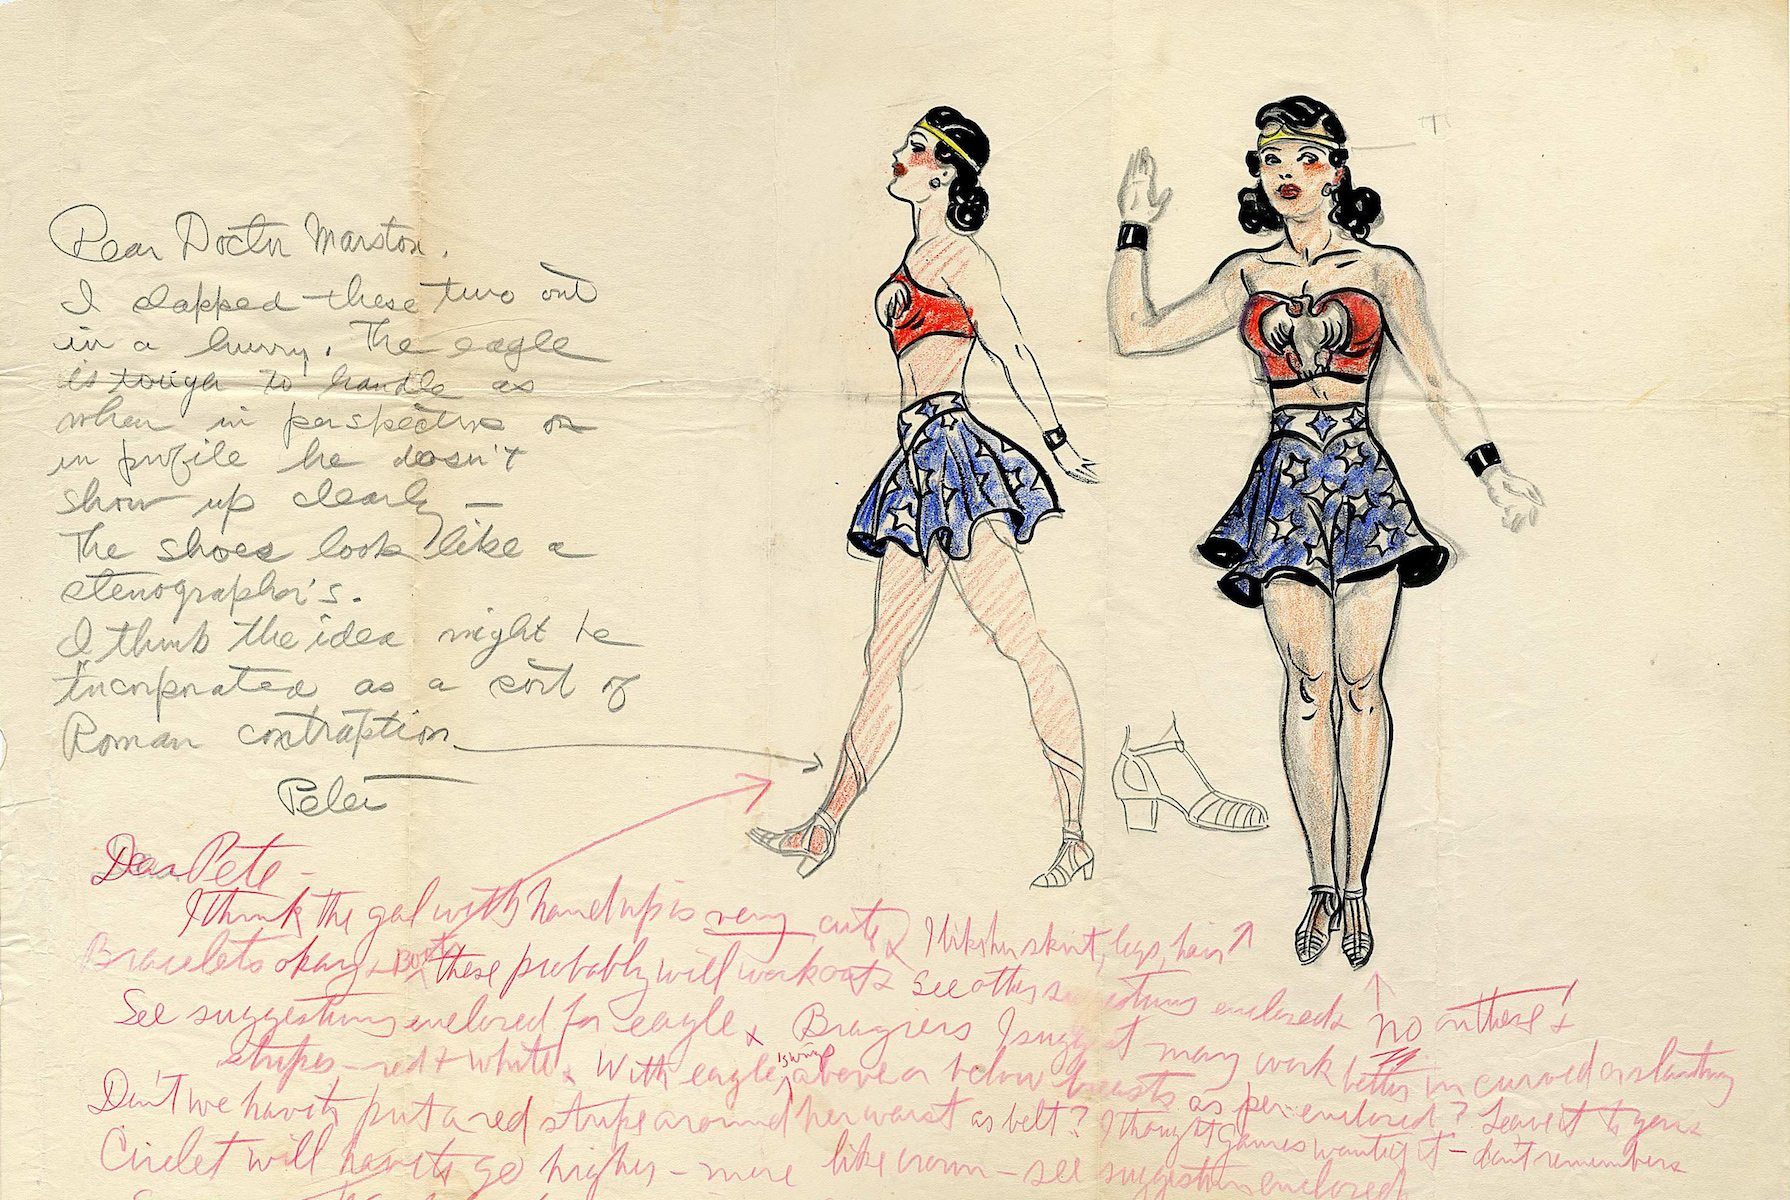 Dear Doctor Marston,
I slapped these two out
in a hurry. The eagle
is tough to handle as
when in perspective or
in profile he doesn't
show up clearly —
The shoes look like a
stenographer's.
I think the idea might be
incorporated as a sort of
Roman contraption
Peter
Dear Pete —
I think the gal with hand up is very cute. I like her skirt, legs, hair
Bracelets okay + boots these probably will work out. See other suggestions enclosed.
No on these +
See suggestions enclosed for eagle. Bragiers I suggest may work better in curved or slanting
stripes - red + white. With eagle's wings above or below breasts as per enclosed? Leave it to you.
Don't we have to put a red stripe around her waist as belt? I thought Gaines wanted it — don't remember.
Circlet will have to go higher — more like crown — see suggestions enclosed